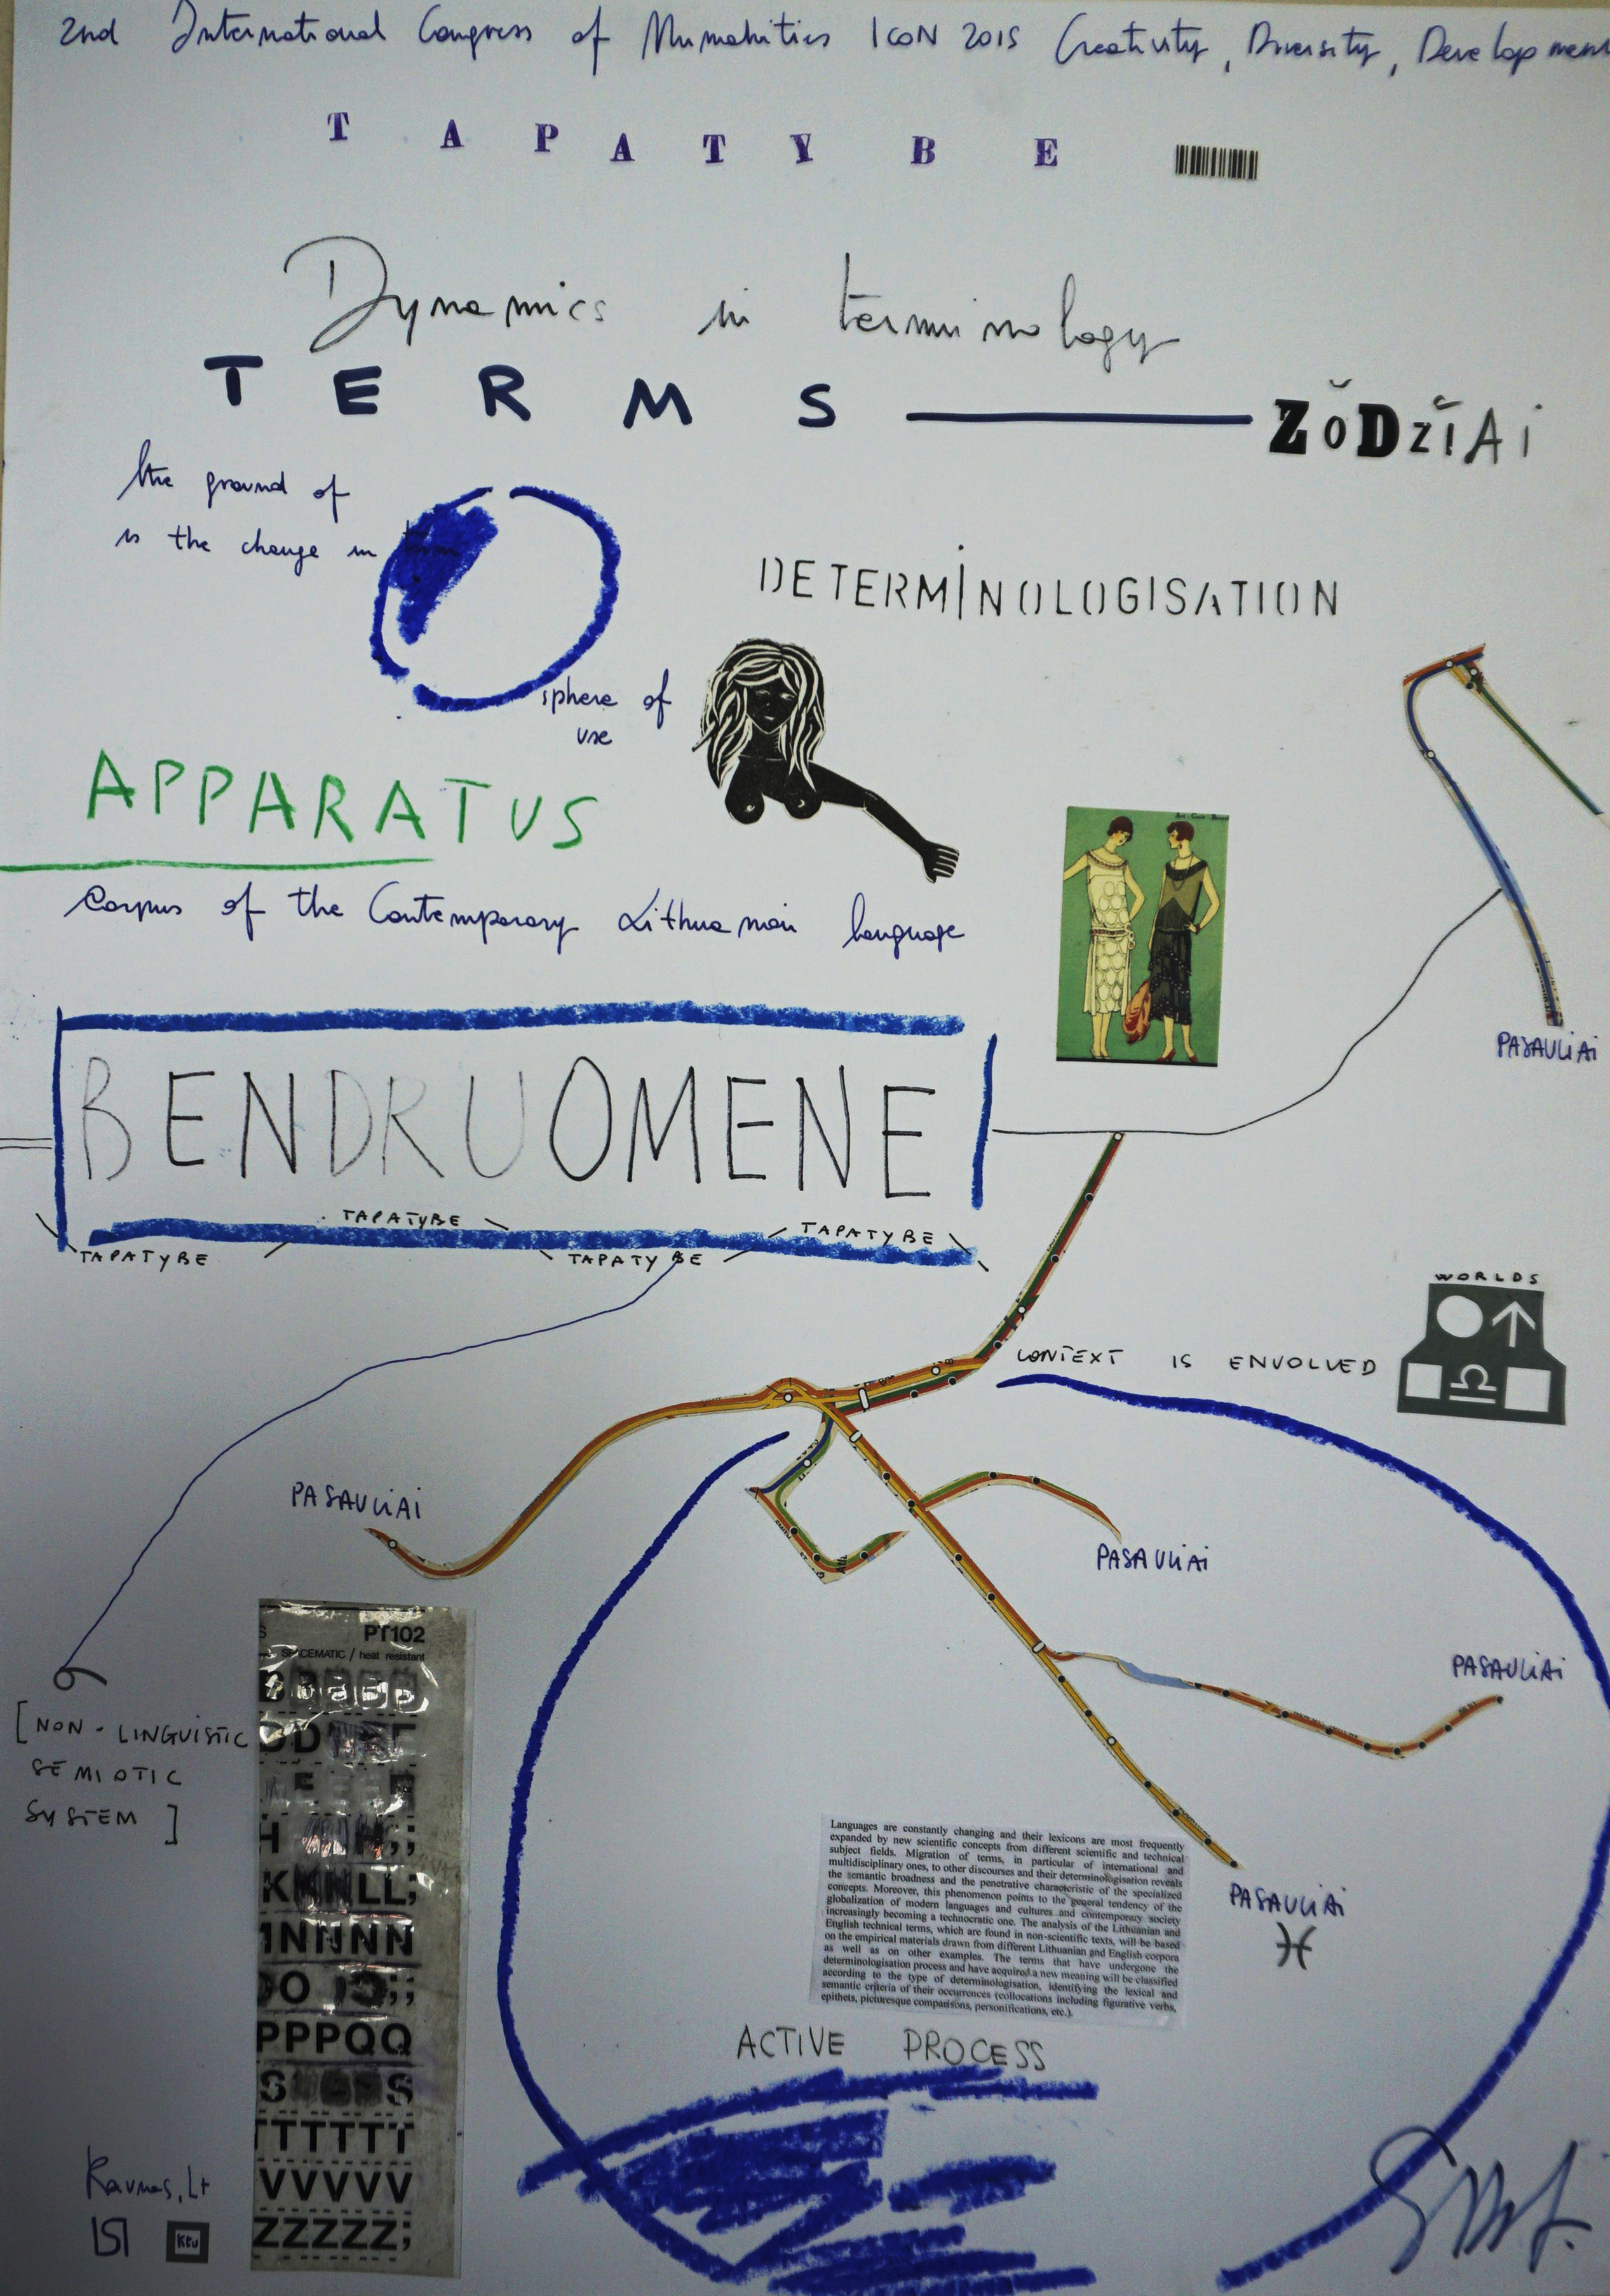 2nd International Congress of Humanities ICoN 2015 Creativity, Diversity, Development
TAPATYBE
Dynamics in terminology
TERMS — ŽODŽIAI
the ground of
is the change in term
DETERMINOLOGISATION
sphere of
use
APPARATUS
Corpus of the Contemporary Lithuanian language
PASAULiAi
BENDRUOMENE
TAPATYBE
TAPATYBE
TAPATYBE
TAPATYBE
WORLDS
CONTEXT IS ENVOLVED
PASAULiAi
PASAULiAi
PASAULiAi
PT102
SPACEMATIC / heat resistant
[NON-LINGUISTIC
SEMIOTIC
SYSTEM]
KKNNLL;
NNNNN
PPPQQ
TTTTTT
VVVVV
ZZZZZ;
Languages are constantly changing and their lexicons are most frequently
expanded by new scientific concepts from different scientific and technical
subject fields. Migration of terms, in particular of international and
multidisciplinary ones, to other discourses and their determinologisation reveals
the semantic broadness and the penetrative characteristic of the specialized
concepts. Moreover, this phenomenon points to the general tendency of the
globalization of modern languages and cultures and contemporary society
increasingly becoming a technocratic one. The analysis of the Lithuanian and
English technical terms, which are found in non-scientific texts, will be based
on the empirical materials drawn from different Lithuanian and English corpora
as well as on other examples. The terms that have undergone the
determinologisation process and have acquired a new meaning will be classified
according to the type of determinologisation, identifying the lexical and
semantic criteria of their occurrences (collocations including figurative verbs,
epithets, picturesque comparisons, personifications, etc.).
PASAULiAi
ACTIVE PROCESS
Kaunas, Lt
ktu